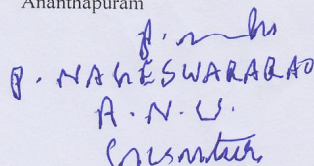 Ananthapuram
P. NAGESWARARAO
A.N.U.
Guntur